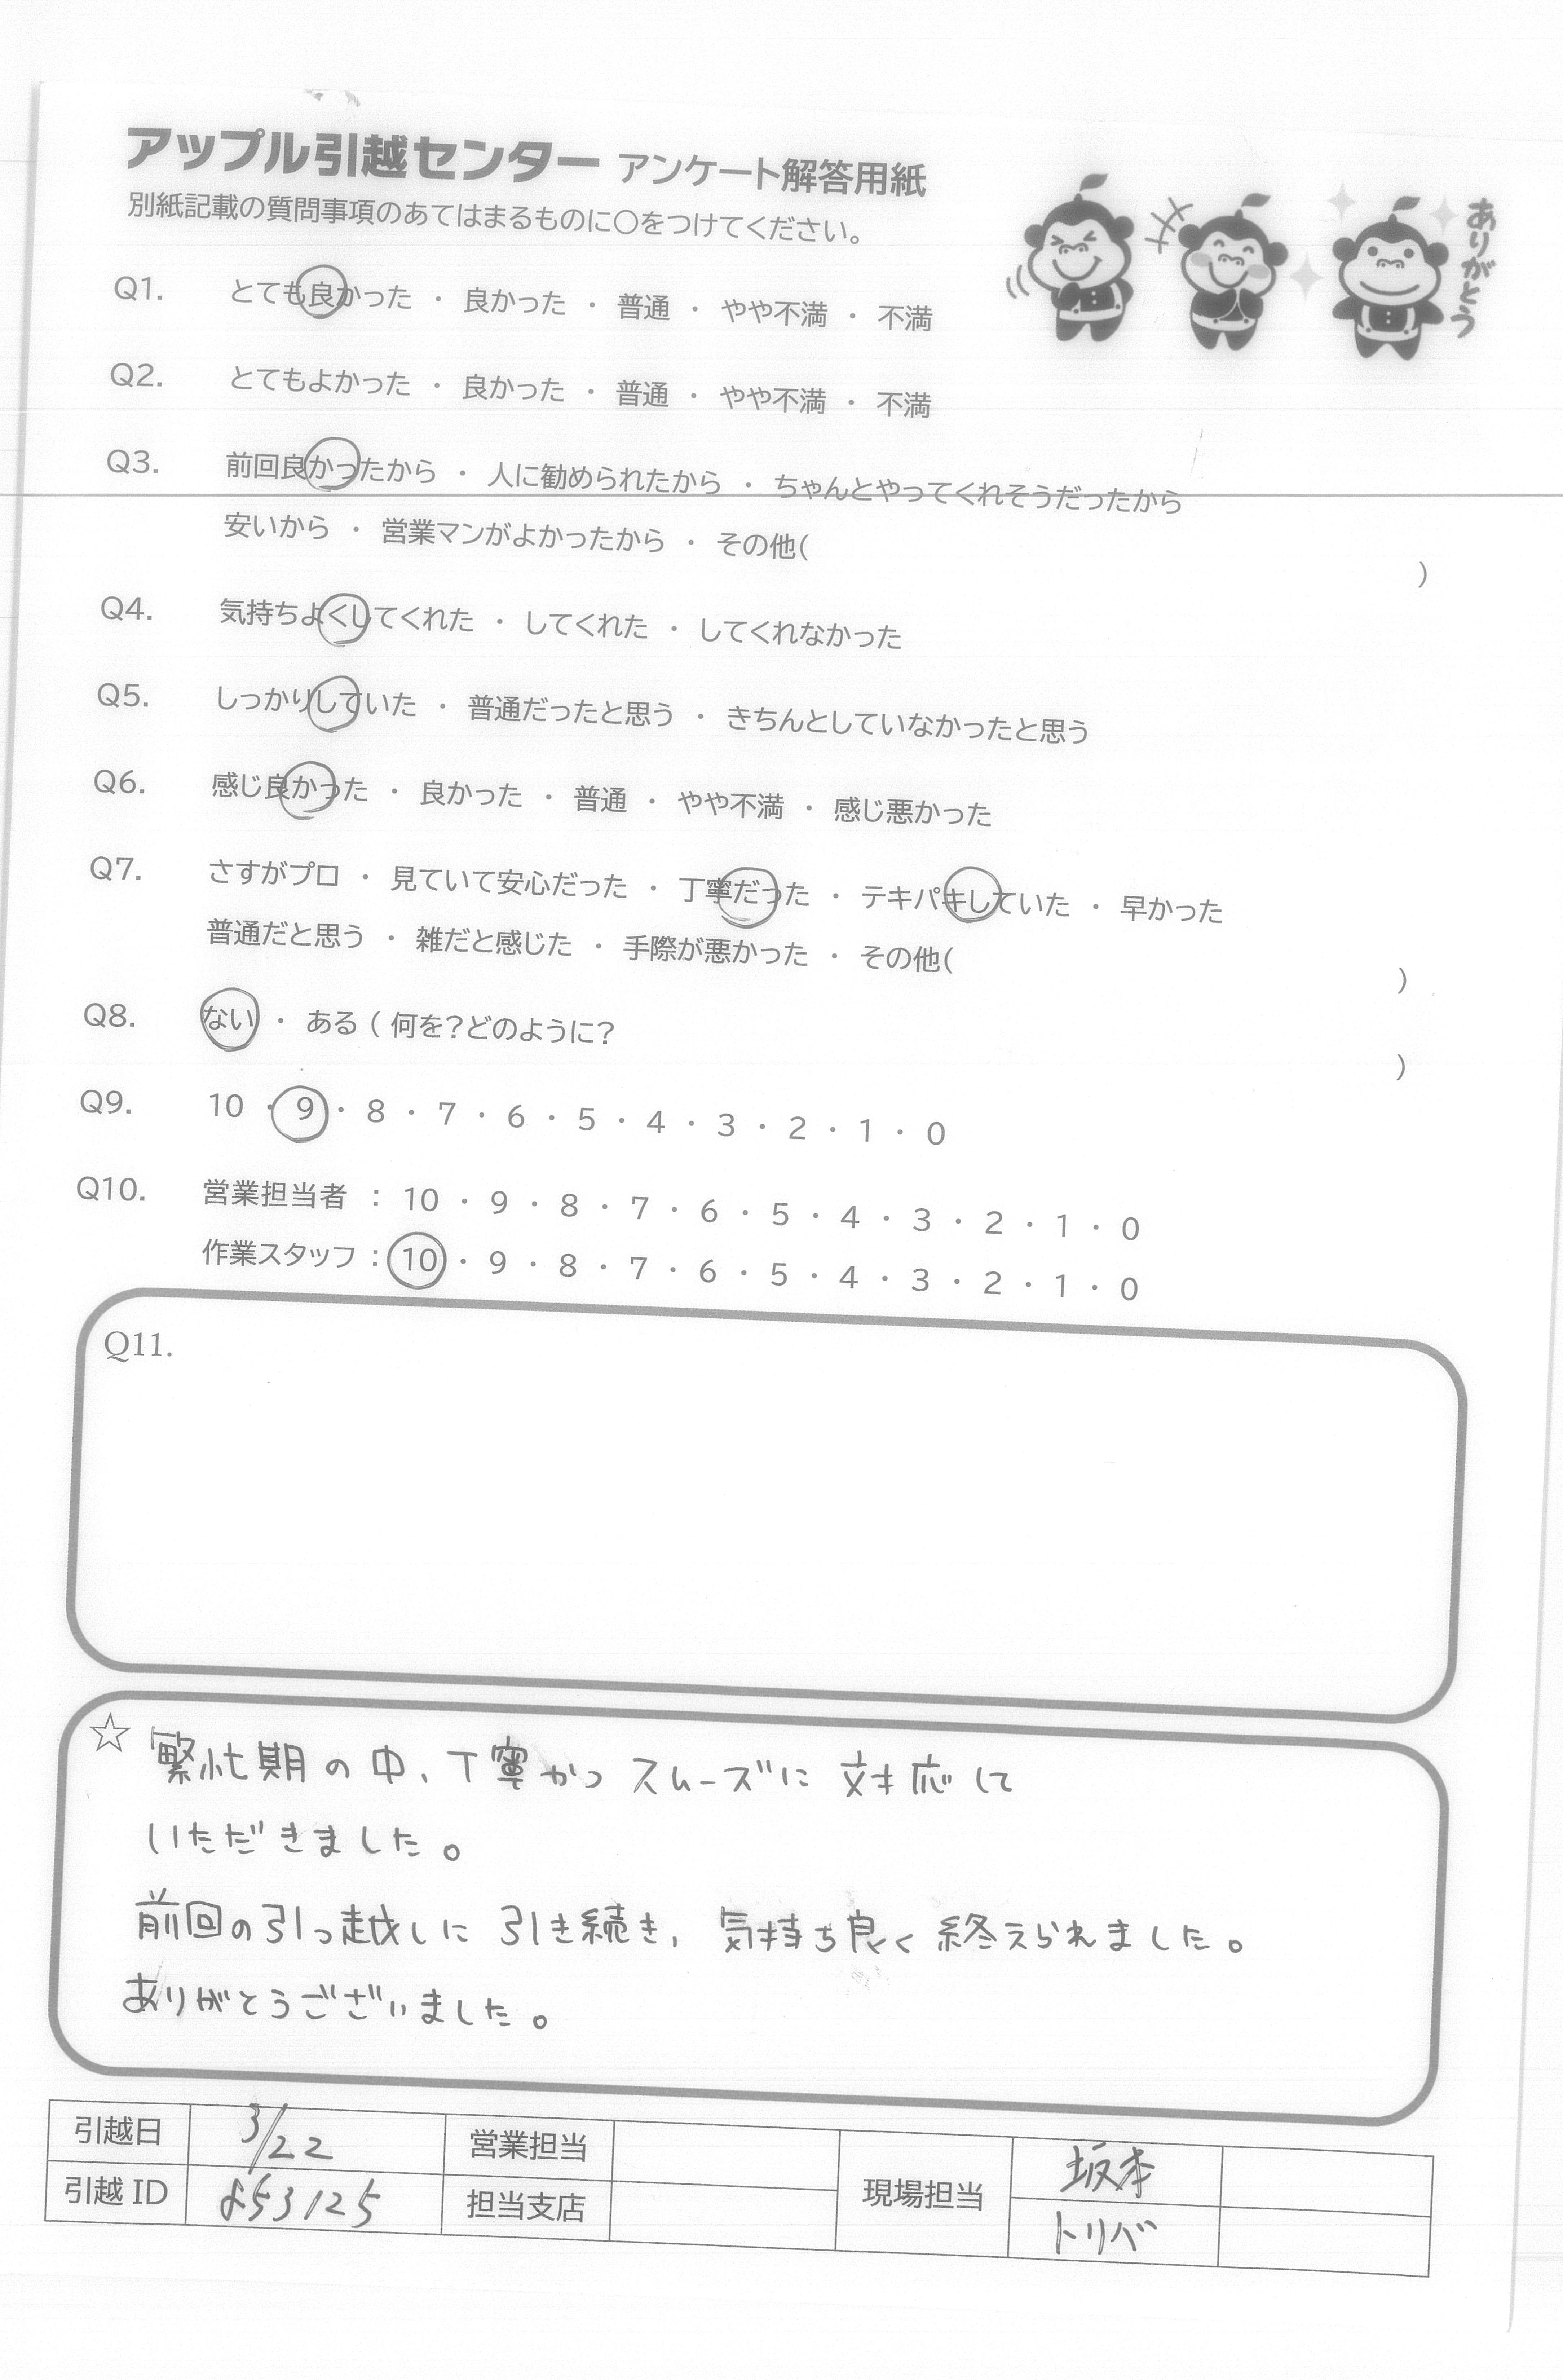 アップル引越センター アンケート解答用紙
ありがとう
別紙記載の質問事項のあてはまるものに○をつけてください。
Q1. とても良かった ・ 良かった ・ 普通 ・ やや不満 ・ 不満
Q2. とてもよかった ・ 良かった ・ 普通 ・ やや不満 ・ 不満
Q3. 前回良かったから ・ 人に勧められたから ・ ちゃんとやってくれそうだったから
安いから ・ 営業マンがよかったから ・ その他( )
Q4. 気持ちよくしてくれた ・ してくれた ・ してくれなかった
Q5. しっかりしていた ・ 普通だったと思う ・ きちんとしていなかったと思う
Q6. 感じ良かった ・ 良かった ・ 普通 ・ やや不満 ・ 感じ悪かった
Q7. さすがプロ ・ 見ていて安心だった ・ 丁寧だった ・ テキパキしていた ・ 早かった
普通だと思う ・ 雑だと感じた ・ 手際が悪かった ・ その他( )
Q8. ない ・ ある ( 何を?どのように? )
Q9. 10 ・ 9 ・ 8 ・ 7 ・ 6 ・ 5 ・ 4 ・ 3 ・ 2 ・ 1 ・ 0
Q10. 営業担当者 : 10 ・ 9 ・ 8 ・ 7 ・ 6 ・ 5 ・ 4 ・ 3 ・ 2 ・ 1 ・ 0
作業スタッフ : 10 ・ 9 ・ 8 ・ 7 ・ 6 ・ 5 ・ 4 ・ 3 ・ 2 ・ 1 ・ 0
Q11.
☆ 繁忙期の中、丁寧かつスムーズに対応して
いただきました。
前回の引っ越しに引き続き、気持ち良く終えられました。
ありがとうございました。
引越日 3/22 営業担当 現場担当 坂本
引越ID 853125 担当支店 トリバ